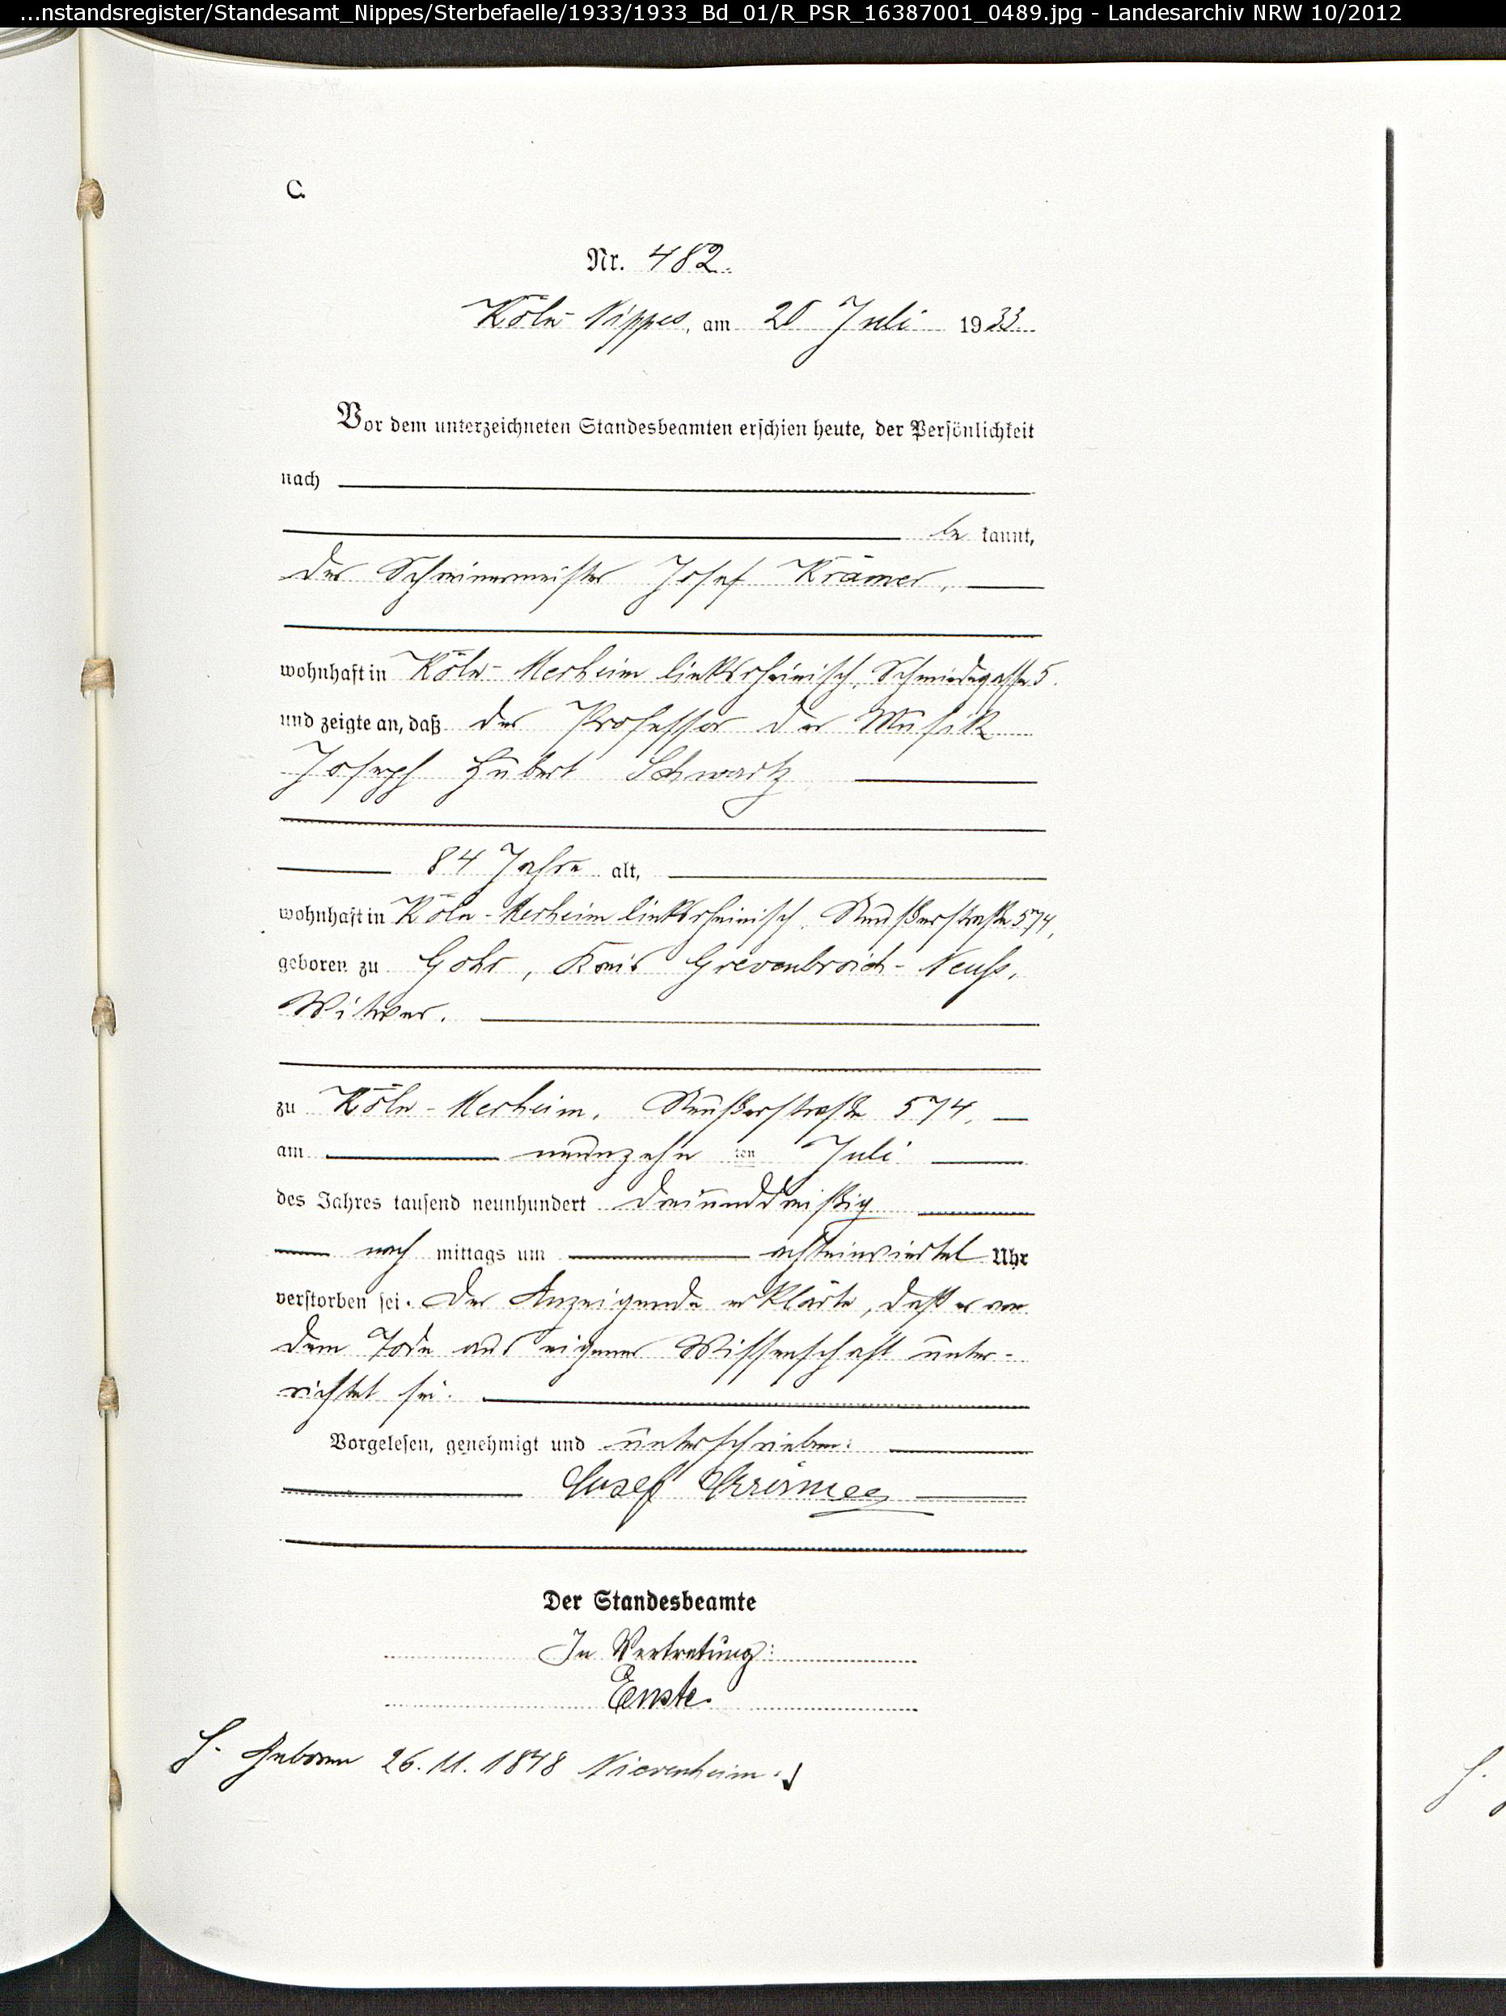 ...nstandsregister/Standesamt_Nippes/Sterbefaelle/1933/1933_Bd_01/R_PSR_16387001_0489.jpg - Landesarchiv NRW 10/2012
C.
Nr. 482.
Köln-Nippes, am 20 Juli 1933.
Vor dem unterzeichneten Standesbeamten erschien heute, der Persönlichkeit
nach
be kannt,
der Schreinermeister Josef Krämer,
wohnhaft in Köln-Merheim linksrheinisch, Schmiedegasse 5.
und zeigte an, daß der Professor der Musik
Joseph Hubert Schwartz
84 Jahre alt,
wohnhaft in Köln-Merheim linksrheinisch, Neußerstraße 574,
geboren zu Gohr, Kreis Grevenbroich-Neuss,
Witwer.
zu Köln-Merheim, Neußerstraße 574,
am neunzehn ten Juli
des Jahres tausend neunhundert dreiunddreißig
nach mittags um achteinviertel Uhr
verstorben sei. Der Anzeigende erklärte, daß er von
dem Tode aus eigener Wissenschaft unter-
richtet sei.
Vorgelesen, genehmigt und unterschrieben:
Josef Krämer
Der Standesbeamte
In Vertretung:
Enste.
H. Geboren 26.11.1848 Nievenheim.
H.